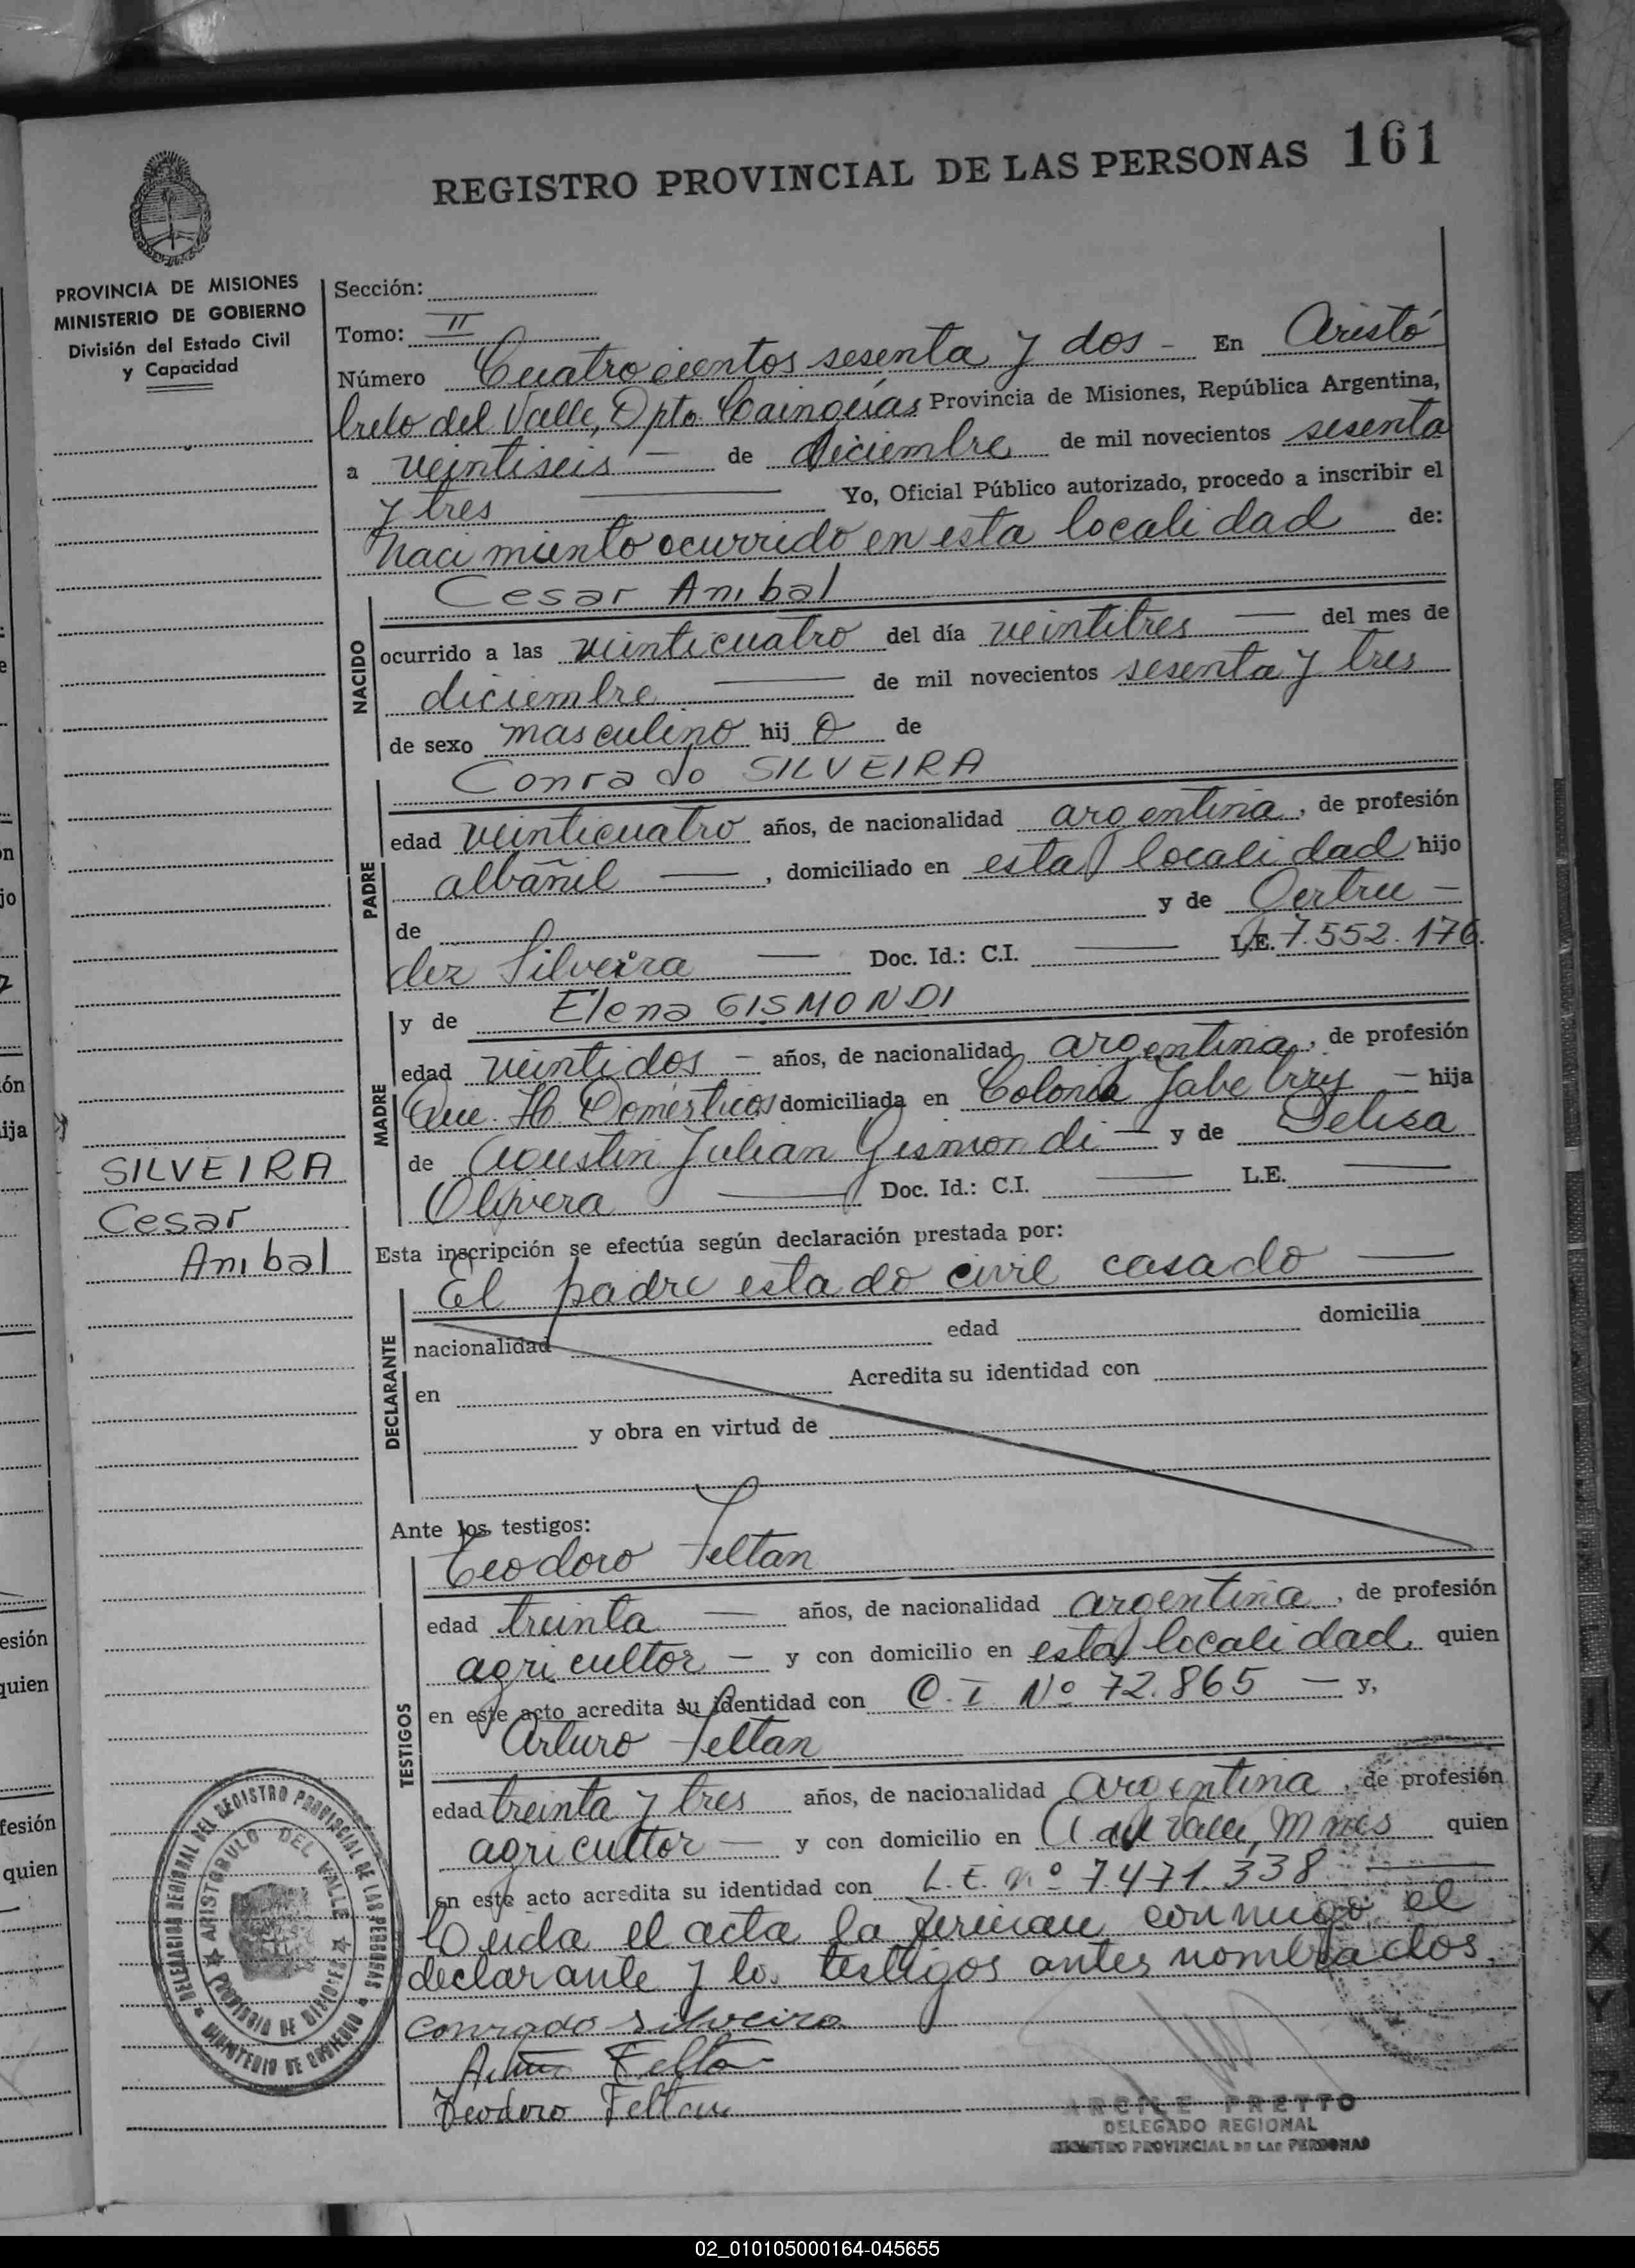 REGISTRO PROVINCIAL DE LAS PERSONAS 161
PROVINCIA DE MISIONES
MINISTERIO DE GOBIERNO
División del Estado Civil
y Capacidad
Sección:
Tomo: II
Número Cuatrocientos sesenta y dos - En Aristó
bulo del Valle, Dpto. Cainguás Provincia de Misiones, República Argentina,
a veintiseis — de diciembre de mil novecientos sesenta
y tres — Yo, Oficial Público autorizado, procedo a inscribir el
Nacimiento ocurrido en esta localidad de:
NACIDO
Cesar Anibal
ocurrido a las veinticuatro del día veintitres — del mes de
diciembre — de mil novecientos sesenta y tres
de sexo masculino hij o de
PADRE
Conrado SILVEIRA
edad veinticuatro años, de nacionalidad argentina, de profesión
albañil —, domiciliado en esta localidad hijo
de y de Gertru-
dez Silveira — Doc. Id.: C.I. — L.E. 7.552.176.
MADRE
y de Elena GISMONDI
edad veintidos - años, de nacionalidad argentina, de profesión
Que. H. Domésticos domiciliada en Colonia Jabebiry - hija
de Agustin Julian Gismondi - y de Delisa
Olivera — Doc. Id.: C.I. — L.E. —
SILVEIRA
Cesar
Anibal
Esta inscripción se efectúa según declaración prestada por:
DECLARANTE
El padre estado civil casado —
nacionalidad edad domicilia
en Acredita su identidad con
y obra en virtud de
Ante los testigos:
TESTIGOS
Teodoro Feltan
edad treinta — años, de nacionalidad argentina, de profesión
agricultor - y con domicilio en esta localidad. quien
en este acto acredita su identidad con C. I. Nº 72.865 — y,
Arturo Feltan
edad treinta y tres años, de nacionalidad argentina, de profesión
agricultor — y con domicilio en A. del Valle, Mnes quien
en este acto acredita su identidad con L.E. nº 7.471.338 —
Leida el acta la firman conmigo el
declarante y los testigos antes nombrados.
Conrado Silveira
Arturo Felta
Teodoro Feltan
DELEGACION REGIONAL DEL REGISTRO PROVINCIAL DE LAS PERSONAS
MINISTERIO DE GOBIERNO
ARISTOBULO DEL VALLE
PROVINCIA DE MISIONES
ARCILE PRETTO
DELEGADO REGIONAL
REGISTRO PROVINCIAL DE LAS PERSONAS
ón
jo
ón
ija
esión
quien
fesión
quien
02_010105000164-045655